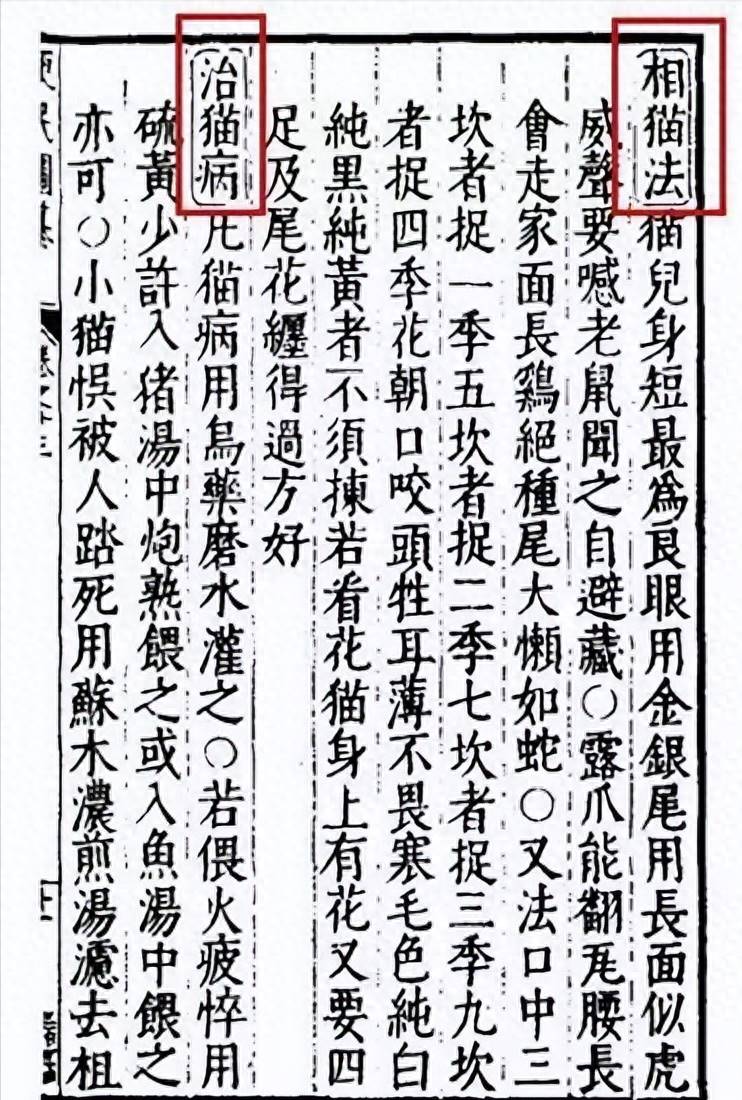 相猫法猫兒身短最爲良眼用金銀尾用長面似虎
威聲要喊老鼠聞之自避藏○露爪能翻瓦腰長
會走家面長鷄絕種尾大懶如蛇○又法口中三
坎者捉一季五坎者捉二季七坎者捉三季九坎
者捉四季花朝口咬頭牲耳薄不畏寒毛色純白
純黑純黃者不須揀若看花猫身上有花又要四
足及尾花纏得過方好
治猫病凡猫病用烏藥磨水灌之○若偎火疲悴用
硫黃少許入猪湯中炮熟餵之或入魚湯中餵之
亦可○小猫悞被人踏死用蘇木濃煎湯濾去柤